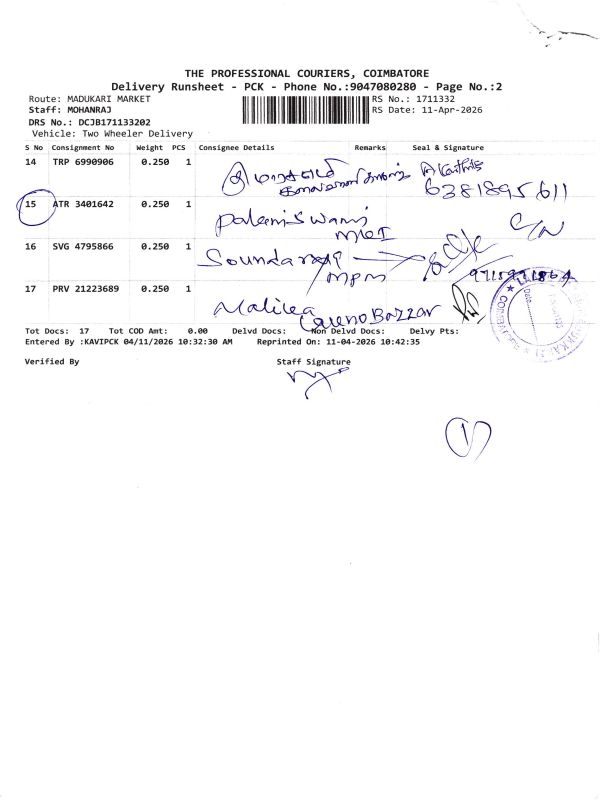 THE PROFESSIONAL COURIERS, COIMBATORE
Delivery Runsheet - PCK - Phone No.:9047080280 - Page No.:2
Route: MADUKARI MARKET RS No.: 1711332
Staff: MOHANRAJ RS Date: 11-Apr-2026
DRS No.: DCJB171133202
Vehicle: Two Wheeler Delivery
S No Consignment No Weight PCS Consignee Details Remarks Seal & Signature
14 TRP 6990906 0.250 1
6381895611
15 ATR 3401642 0.250 1 Palaniswami
16 SVG 4795866 0.250 1 Soundaraj
MPM
17 PRV 21223689 0.250 1
Tot Docs: 17 Tot COD Amt: 0.00 Delvd Docs: Non Delvd Docs: Delvy Pts:
Entered By :KAVIPCK 04/11/2026 10:32:30 AM Reprinted On: 11-04-2026 10:42:35
Verified By Staff Signature
1